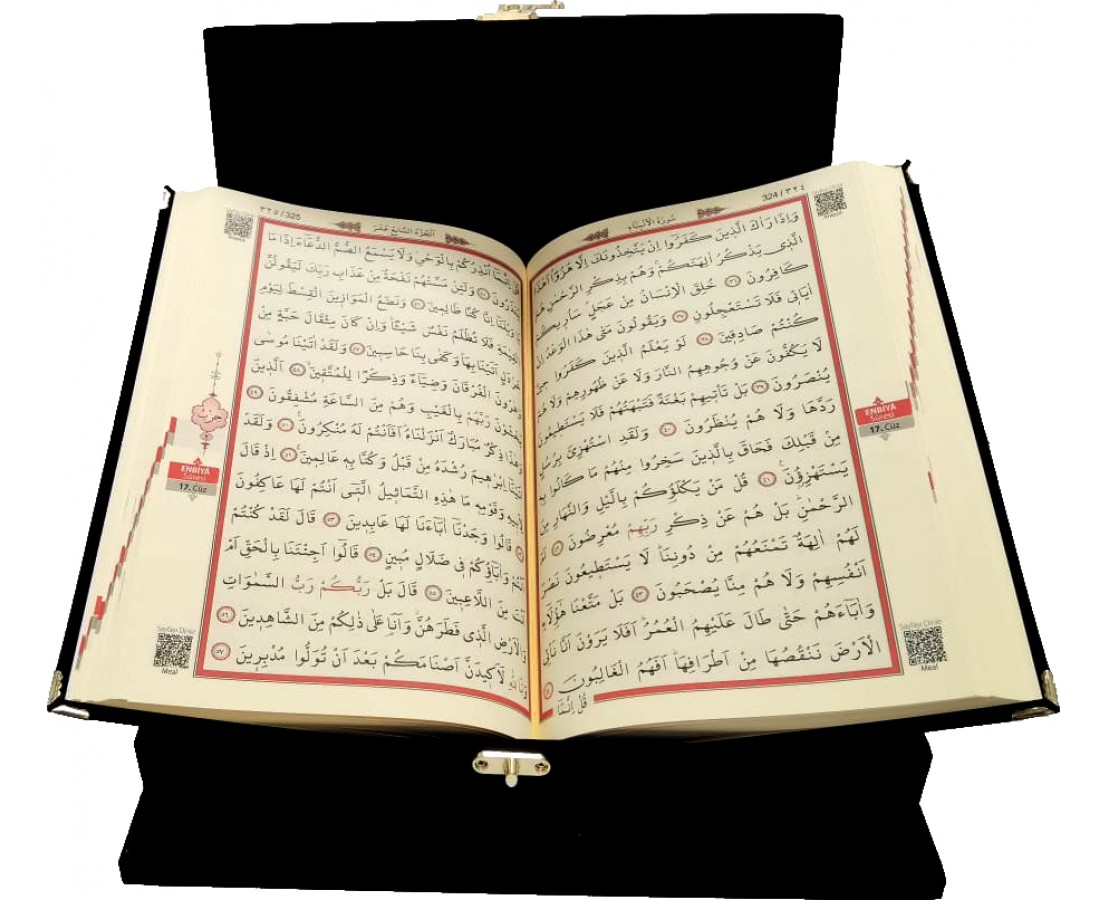 324 / ٣٢٤
سُورَةُ الْاَنْبِيَاءِ
وَاِذَا رَاٰكَ الَّذ۪ينَ كَفَرُٓوا اِنْ يَتَّخِذُونَكَ اِلَّا هُزُوًاۜ اَهٰذَا
الَّذ۪ي يَذْكُرُ اٰلِهَتَكُمْۚ وَهُمْ بِذِكْرِ الرَّحْمٰنِ هُمْ
كَافِرُونَ ٣٦ خُلِقَ الْاِنْسَانُ مِنْ عَجَلٍۜ سَاُر۪يكُمْ
اٰيَات۪ي فَلَا تَسْتَعْجِلُونِ ٣٧ وَيَقُولُونَ مَتٰى هٰذَا الْوَعْدُ اِنْ
كُنْتُمْ صَادِق۪ينَ ٣٨ لَوْ يَعْلَمُ الَّذ۪ينَ كَفَرُوا ح۪ينَ
لَا يَكُفُّونَ عَنْ وُجُوهِهِمُ النَّارَ وَلَا عَنْ ظُهُورِهِمْ وَلَا هُمْ
يُنْصَرُونَ ٣٩ بَلْ تَأْت۪يهِمْ بَغْتَةً فَتَبْهَتُهُمْ فَلَا يَسْتَط۪يعُونَ
رَدَّهَا وَلَا هُمْ يُنْظَرُونَ ٤٠ وَلَقَدِ اسْتُهْزِئَ بِرُسُلٍ
مِنْ قَبْلِكَ فَحَاقَ بِالَّذ۪ينَ سَخِرُوا مِنْهُمْ مَا كَانُوا بِه۪
يَسْتَهْزِؤُ۫نَ۟ ٤١ قُلْ مَنْ يَكْلَؤُ۬كُمْ بِالَّيْلِ وَالنَّهَارِ مِنَ
الرَّحْمٰنِۜ بَلْ هُمْ عَنْ ذِكْرِ رَبِّهِمْ مُعْرِضُونَ ٤٢ اَمْ
لَهُمْ اٰلِهَةٌ تَمْنَعُهُمْ مِنْ دُونِنَاۜ لَا يَسْتَط۪يعُونَ نَصْرَ
اَنْفُسِهِمْ وَلَا هُمْ مِنَّا يُصْحَبُونَ ٤٣ بَلْ مَتَّعْنَا هٰٓؤُ۬لَٓاءِ
وَاٰبَٓاءَهُمْ حَتّٰى طَالَ عَلَيْهِمُ الْعُمُرُۜ اَفَلَا يَرَوْنَ اَنَّا نَأْتِي
الْاَرْضَ نَنْقُصُهَا مِنْ اَطْرَافِهَاۜ اَفَهُمُ الْغَالِبُونَ
قُلْ اِنَّمَٓا
ENBİYA
Sûresi
17. Cüz
Sayfayı Dinle
Meal
٣٢٥ / 325
اَلْجُزْءُ السَّابِعُ عَشَرَ
قُلْ اِنَّمَٓا اُنْذِرُكُمْ بِالْوَحْيِۘ وَلَا يَسْمَعُ الصُّمُّ الدُّعَٓاءَ اِذَا مَا
يُنْذَرُونَ ٤٥ وَلَئِنْ مَسَّتْهُمْ نَفْحَةٌ مِنْ عَذَابِ رَبِّكَ لَيَقُولُنَّ
يَا وَيْلَنَٓا اِنَّا كُنَّا ظَالِم۪ينَ ٤٦ وَنَضَعُ الْمَوَاز۪ينَ الْقِسْطَ لِيَوْمِ
الْقِيٰمَةِ فَلَا تُظْلَمُ نَفْسٌ شَيْـًٔاۜ وَاِنْ كَانَ مِثْقَالَ حَبَّةٍ مِنْ
خَرْدَلٍ اَتَيْنَا بِهَاۜ وَكَفٰى بِنَا حَاسِب۪ينَ ٤٧ وَلَقَدْ اٰتَيْنَا مُوسٰى
وَهٰرُونَ الْفُرْقَانَ وَضِيَٓاءً وَذِكْرًا لِلْمُتَّق۪ينَۙ ٤٨ اَلَّذ۪ينَ
يَخْشَوْنَ رَبَّهُمْ بِالْغَيْبِ وَهُمْ مِنَ السَّاعَةِ مُشْفِقُونَ ٤٩
وَهٰذَا ذِكْرٌ مُبَارَكٌ اَنْزَلْنَاهُۜ اَفَاَنْتُمْ لَهُ مُنْكِرُونَ۟ ٥٠ وَلَقَدْ
اٰتَيْنَٓا اِبْرٰه۪يمَ رُشْدَهُ مِنْ قَبْلُ وَكُنَّا بِه۪ عَالِم۪ينَۚ ٥١ اِذْ قَالَ
لِاَب۪يهِ وَقَوْمِه۪ مَا هٰذِهِ التَّمَاث۪يلُ الَّت۪ٓي اَنْتُمْ لَهَا عَاكِفُونَ
٥٢ قَالُوا وَجَدْنَٓا اٰبَٓاءَنَا لَهَا عَابِد۪ينَ ٥٣ قَالَ لَقَدْ كُنْتُمْ
اَنْتُمْ وَاٰبَٓاؤُ۬كُمْ ف۪ي ضَلَالٍ مُب۪ينٍ ٥٤ قَالُٓوا اَجِئْتَنَا بِالْحَقِّ اَمْ
اَنْتَ مِنَ اللَّاعِب۪ينَ ٥٥ قَالَ بَلْ رَبُّكُمْ رَبُّ السَّمٰوَاتِ
وَالْاَرْضِ الَّذ۪ي فَطَرَهُنَّۘ وَاَنَا۬ عَلٰى ذٰلِكُمْ مِنَ الشَّاهِد۪ينَ ٥٦
وَتَاللّٰهِ لَاَك۪يدَنَّ اَصْنَامَكُمْ بَعْدَ اَنْ تُوَلُّوا مُدْبِر۪ينَ ٥٧
حزب
ENBİYA
Sûresi
17. Cüz
Sayfayı Dinle
Meal